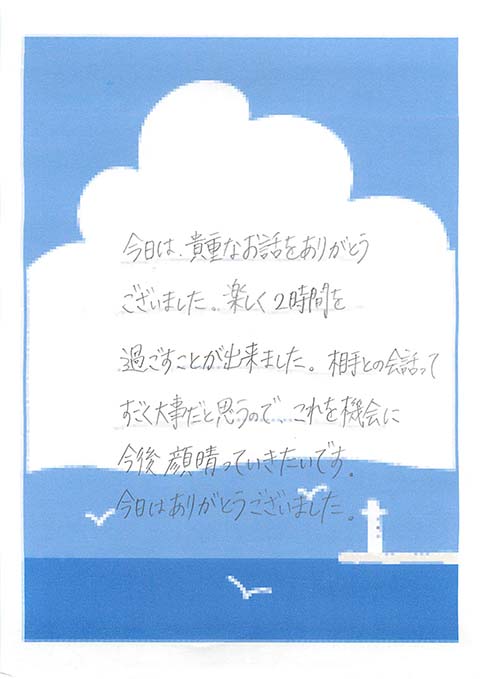 今日は、貴重なお話をありがとう
ございました。楽しく2時間を
過ごすことが出来ました。相手との会話って
すごく大事だと思うので、これを機会に
今後顔晴っていきたいです。
今日はありがとうございました。